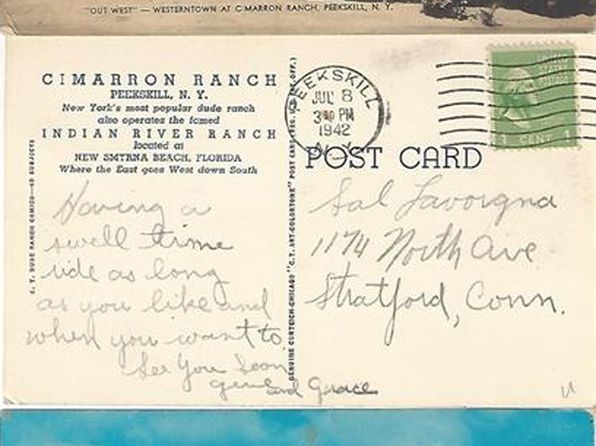 "OUT WEST" — WESTERNTOWN AT CIMARRON RANCH, PEEKSKILL, N. Y.
CIMARRON RANCH
PEEKSKILL, N. Y.
New York's most popular dude ranch
also operates the famed
INDIAN RIVER RANCH
located at
NEW SMYRNA BEACH, FLORIDA
Where the East goes West down South
Having a
swell time
ride as long
as you like and
when you want to
See You Soon
Gene and Grace
C. T. DUDE RANCH COMICS—40 SUBJECTS
GENUINE CURTEICH-CHICAGO "C. T. ART-COLORTONE" POST CARD (REG. U.S. PAT. OFF.)
PEEKSKILL
JUL 8
PM
1942
N. Y.
1 CENT 1
POST CARD
Sal Lavorgna
1174 North Ave
Stratford, Conn.